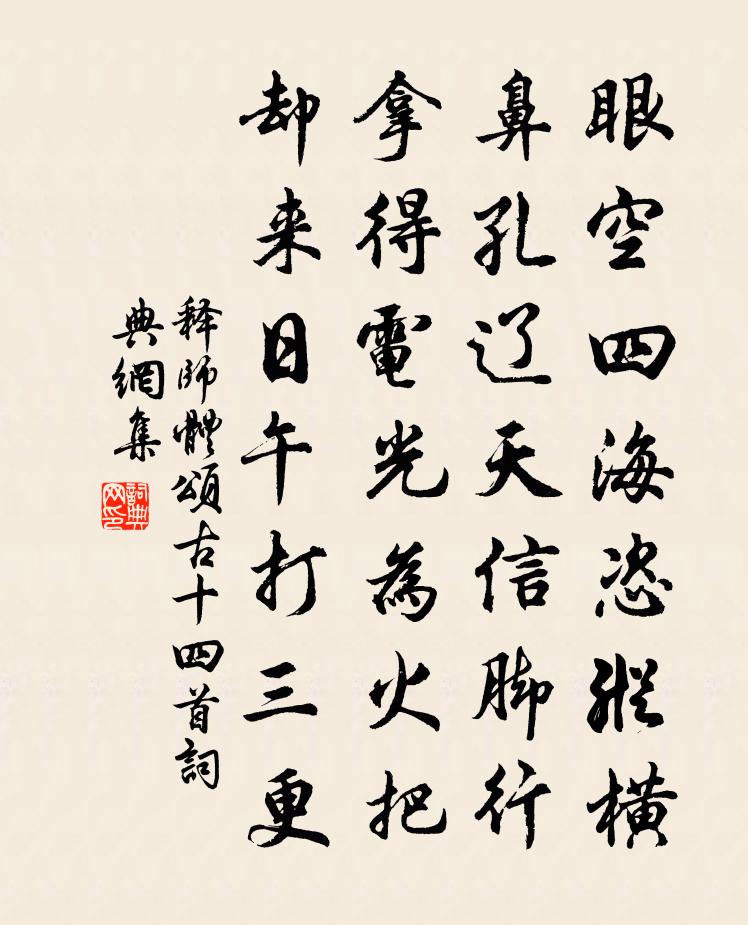 眼空四海恣縱橫
鼻孔辽天信脚行
拿得電光為火把
却来日午打三更
释師體頌古十四首詞
典網集
詞典
网印